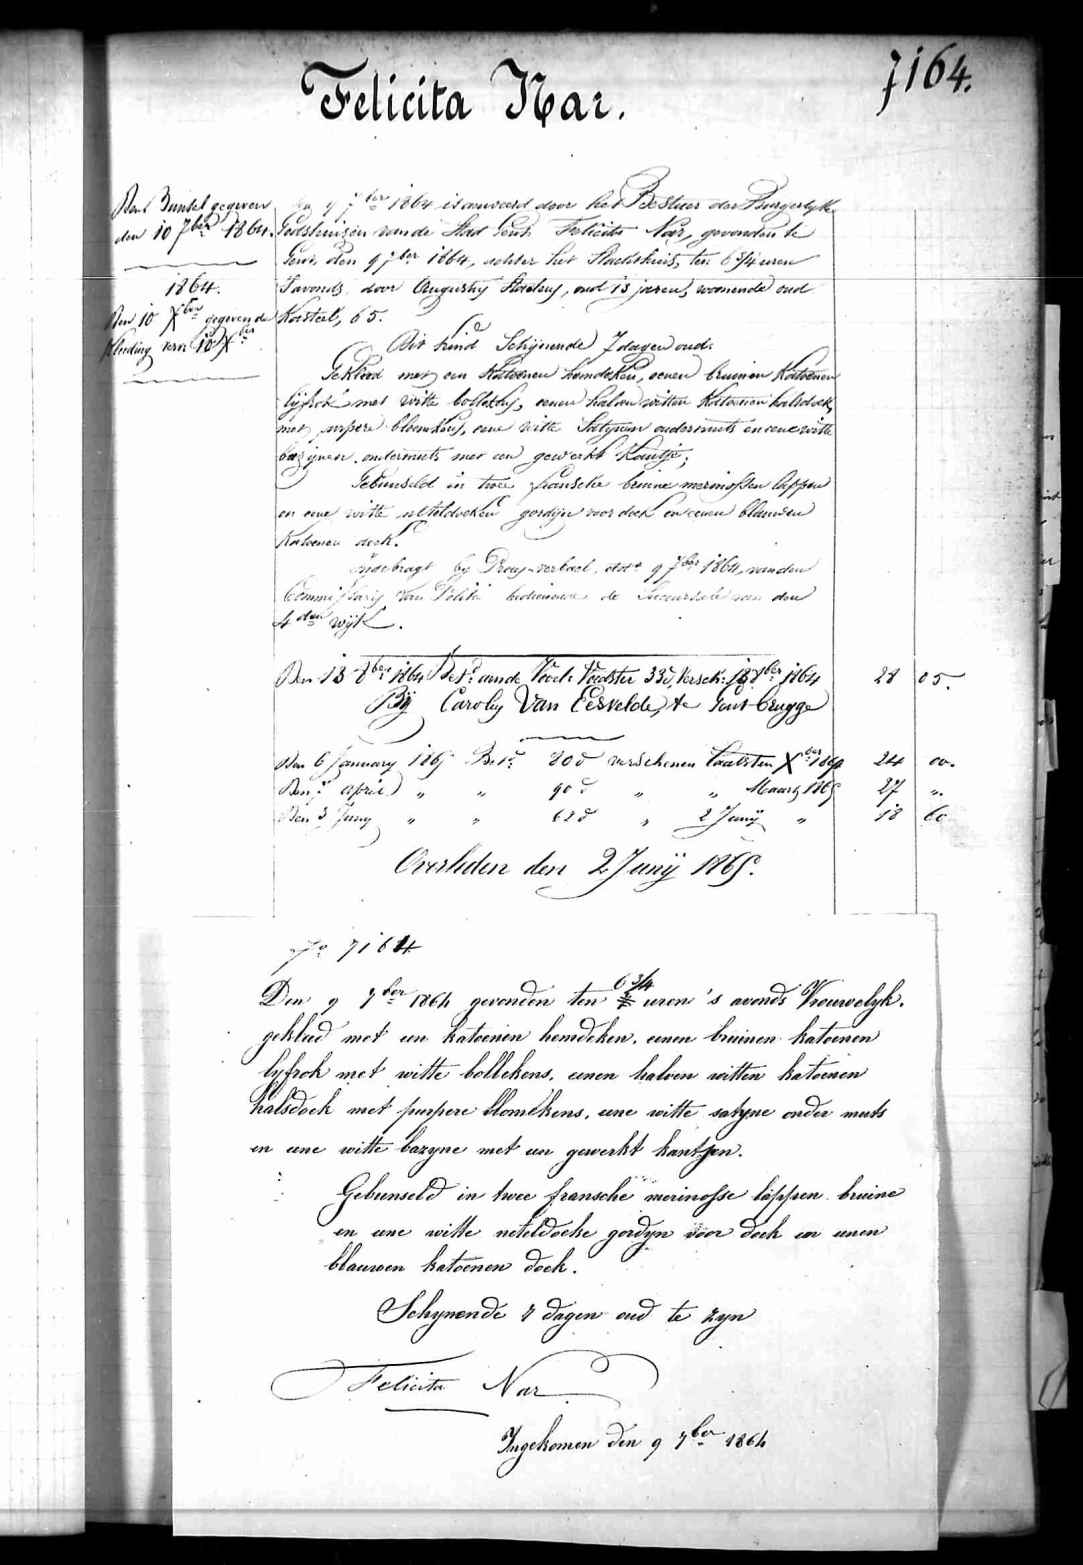 7164.
Felicita Nar.
Een Bunsel gegeven
den 10 7ber 1864.
1864.
Den 10 Xber gegeven de
kleeding vern 10 Xber
9 7ber 1864 is aanveerd door het Bestuer der Burgerlyke
Godshuizen van de Stad Gent Felicita Nar, gevonden te
Gent den 9 7ber 1864, achter het Slachthuis, ten 6 3/4 uren
s'avonds door Augustus oud 13 jaren, woonende oud
Kasteel, 65.
Dit kind Schijnende 7 dagen oud.
Gekleed met een Katoenen hemdeken, eenen bruinen Katoenen
lijfrok met witte bollekens, eenen halven witten Katoenen halsdoek
met purpere bloemkens, eene witte Satynen ondermuts en eene witte
bazijnen ondermuts met een gewerkt Kantje;
Gebunseld in twee fransche bruine merinossen lappen
en eene witte neteldoeken gordijn voor doek en eenen blauwen
Katoenen doek.
Ingebragt by Proces-verbael dato 9 7ber 1864, van den
Commissaris van Politie bedienende de Succursale van den
4den wijk.
Den 13 8ber 1864 Best: aan de Voedster 33d, versch: 13 8ber 1864 28 05.
Bij Carolus Van Eesvelde, te Gent-brugge
Den 6 January 1865 Best: 80d verschenen laatsten Xber 1864 24 00.
Den april " " 90d " " Maart 1865 27 ".
Den 3 Juny " " 62d " 2 Junij " 18 60
Overleden den 2 Junij 1865.
No 7164
Den 9 7ber 1864 gevonden ten 6 3/4 uren 's avonds Vrouwelyk.
gekleed met een katoenen hemdeken, eenen bruinen katoenen
lyfrok met witte bollekens, eenen halven witten katoenen
halsdoek met purpere blomekens, eene witte satyne onder muts
en eene witte bazyne met een gewerkt kantjen.
Gebunseld in twee fransche merinosse lappen bruine
en eene witte neteldoeke gordyn voor doek en eenen
blauwen katoenen doek.
Schynende 7 dagen oud te zyn
Felicita Nar
Ingekomen den 9 7ber 1864